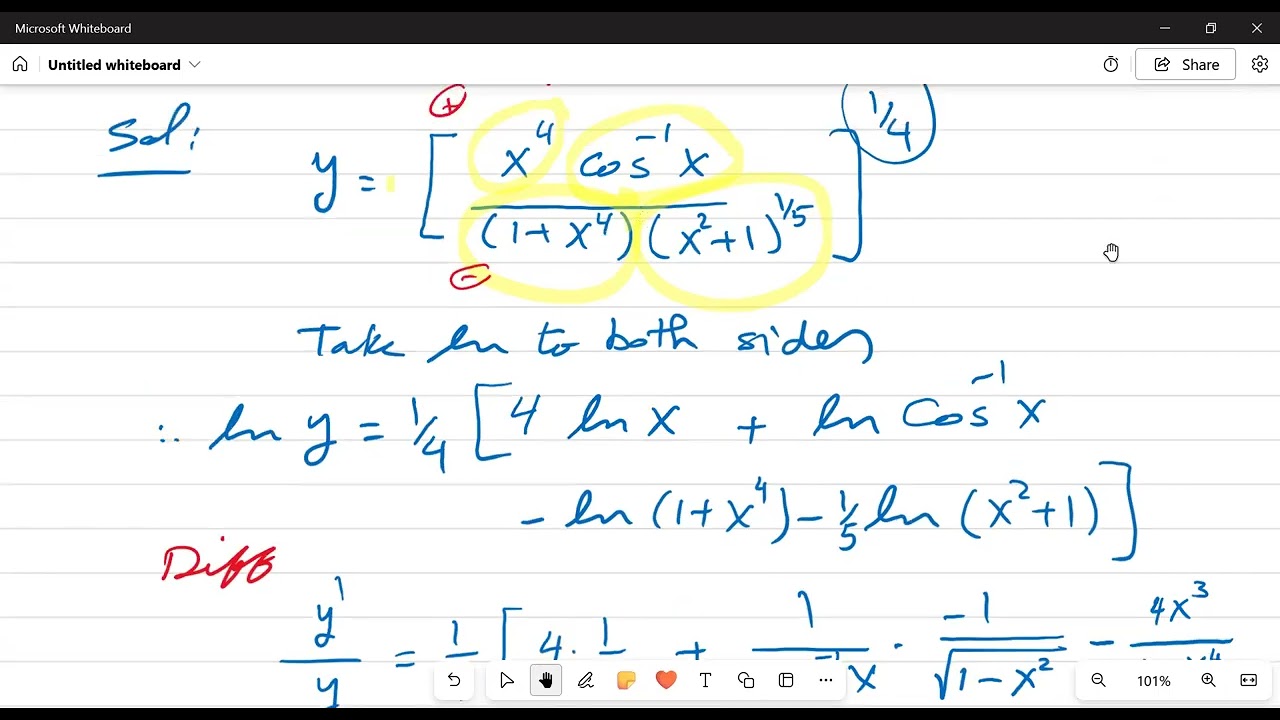 Microsoft Whiteboard
Untitled whiteboard
Share
Sol:
y = [ x^4 cos^-1 x / (1+x^4) (x^2+1)^1/5 ]^1/4
+
-
Take ln to both sides
∴ ln y = 1/4 [ 4 ln x + ln Cos^-1 x
- ln (1+x^4) - 1/5 ln (x^2+1) ]
Diff
y'/y = 1/ [ 4 · 1/ + 1/ ^-1 x · -1/√1-x^2 - 4x^3/ x^4
101%